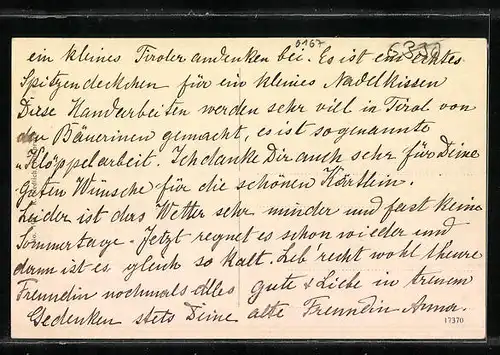 0167
6330
ein kleines Tiroler andenken bei. Es ist ein echtes
Spitzendeckchen für ein kleines Nadelkissen
Diese Handarbeiten werden sehr vill in Tirol von
den Bäuerinen gemacht, es ist sogenannte
„Klöppelarbeit. Ich danke Dir auch sehr für Deine
guten Wünsche für die schönen Körtlein.
Leider ist das Wetter sehr minder und fast keine
Sommertage - Jetzt regnet es schon wieder und
dann ist es gleich so kalt. Leb' recht wohl theure
Freundin nochmals alles gute & Liebe in treuem
Gedenken stets Deine alte Freundin Anna.
17370